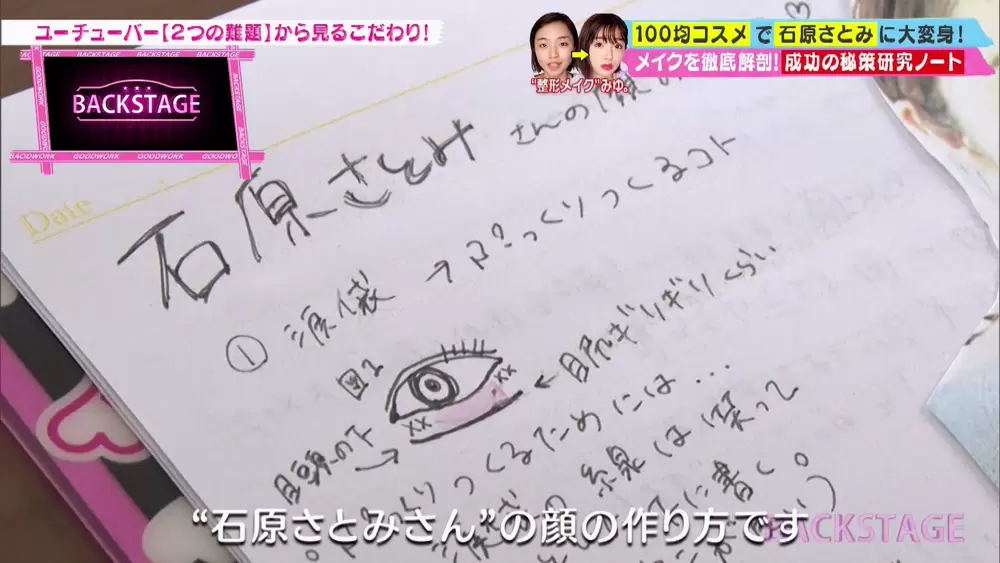 ユーチューバー【2つの難題】から見るこだわり!
100均コスメで石原さとみに大変身!
メイクを徹底解剖!成功の秘策研究ノート
"整形メイク"みゆ。
BACKSTAGE
GOODWORK
BACKSTAGE
GOODWORK
GOODWORK
BACKSTAGE
Date
石原さとみ さんの
① 涙袋 → ぷっくりつくるコト
図1
← 目尻ぎりぎりくらい
目頭の下 →
つくるためには…
は笑って
に書く。
"石原さとみさん"の顔の作り方です
BACKSTAGE